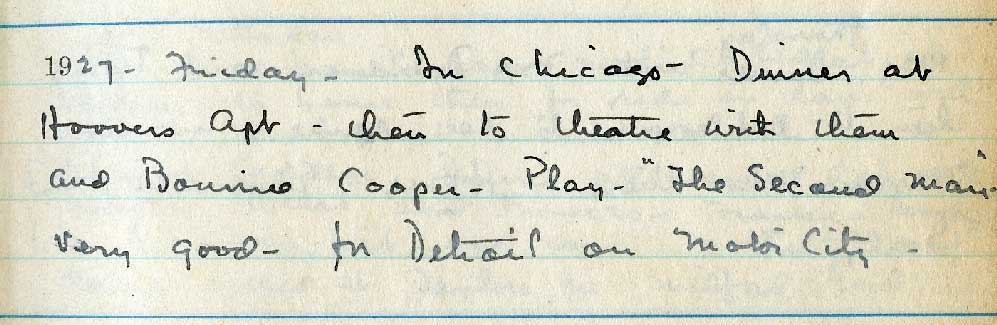 1927 - Friday - In Chicago - Dinner at
Hoovers Apt - then to theatre with them
and Cooper - Play - "The Second Man" -
very good - for Detroit on Motor City -